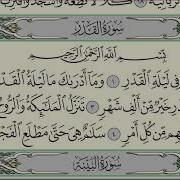 كَلَّا لَا تُطِعْهُ وَاسْجُدْ وَاقْتَرِب
سُورَةُ الْقَدْرِ
بِسْمِ اللَّهِ الرَّحْمَٰنِ الرَّحِيمِ
فِي لَيْلَةِ الْقَدْرِ ١ وَمَا أَدْرَىٰكَ مَا لَيْلَةُ الْقَد
دْرِ خَيْرٌ مِّنْ أَلْفِ شَهْرٍ ٣ تَنَزَّلُ الْمَلَٰٓئِكَةُ وَالرُّو
هِم مِّن كُلِّ أَمْرٍ ٤ سَلَٰمٌ هِيَ حَتَّىٰ مَطْلَعِ الْفَجْ
سُورَةُ الْبَيِّنَةِ